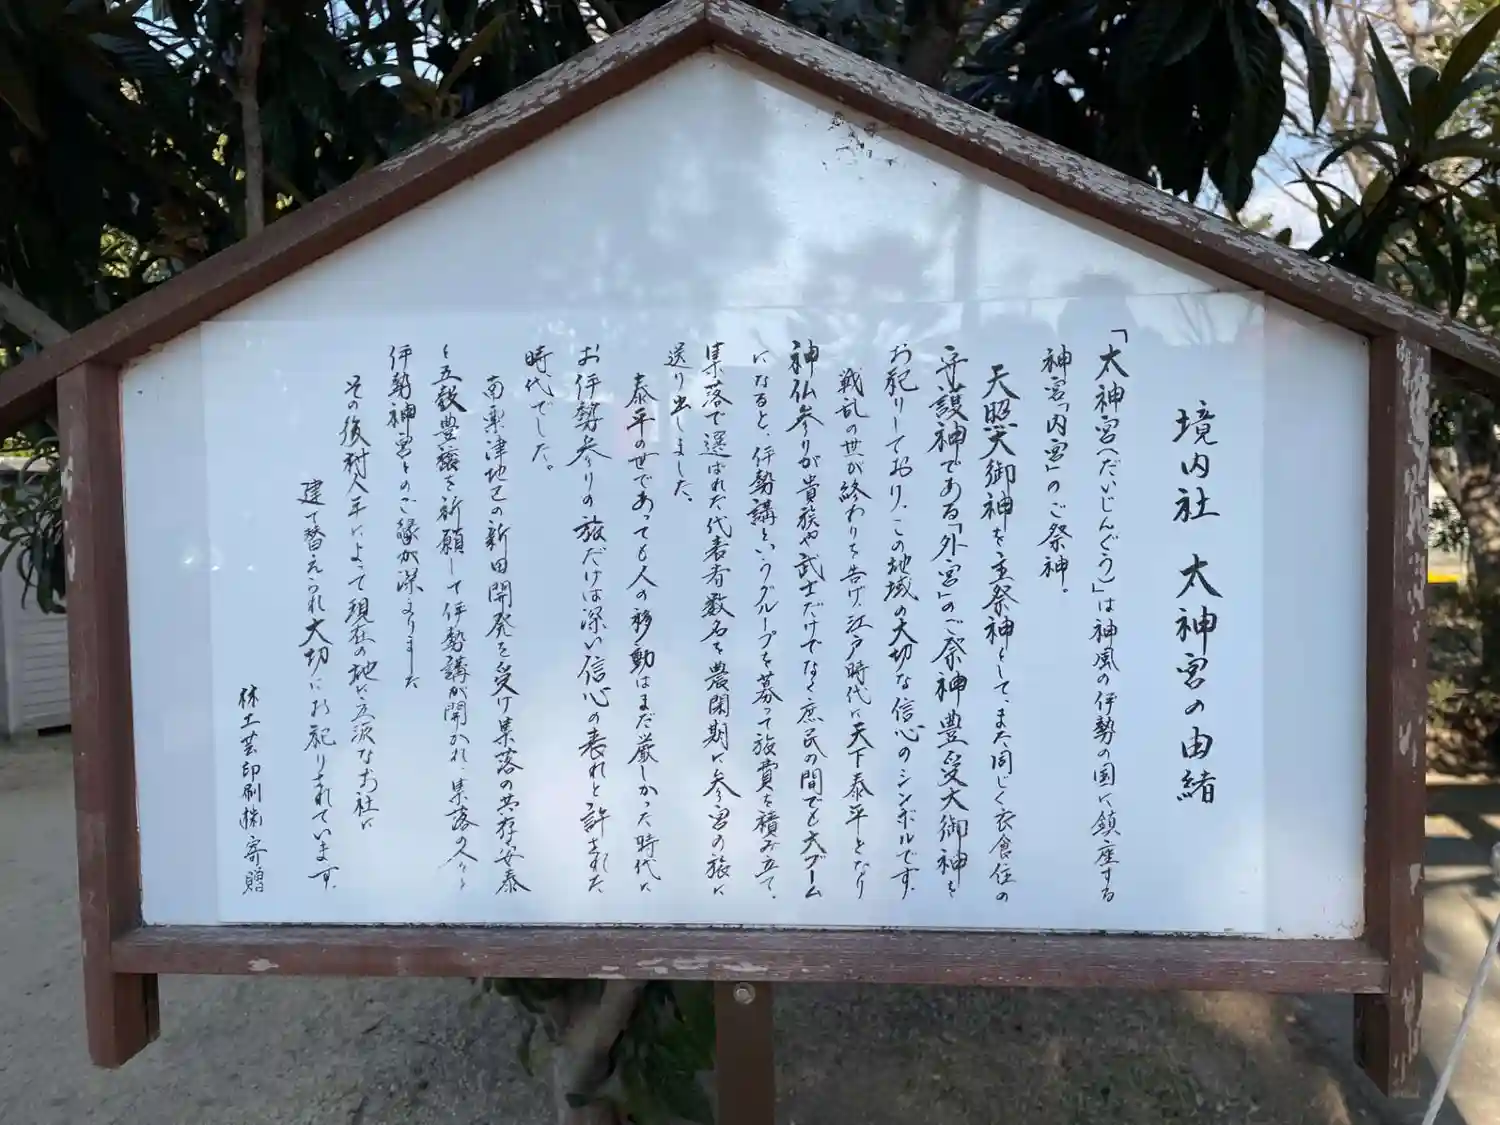 境内社 大神宮の由緒
「大神宮(だいじんぐう)」は神風の伊勢の国に鎮座する
神宮「内宮」のご祭神。
天照大御神を主祭神として、また同じく衣食住の
守護神である「外宮」のご祭神豊受大御神を
お祀りしており、この地域の大切な信心のシンボルです。
戦乱の世が終わりを告げ、江戸時代に天下泰平となり
神仏参りが貴族や武士だけでなく庶民の間でも大ブーム
になると、伊勢講というグループを募って旅費を積み立て、
集落で選ばれた代表者数名を農閑期に参宮の旅に
送り出しました。
泰平の世であっても人の移動はまだ厳しかった時代に
お伊勢参りの旅だけは深い信心の表れと許された
時代でした。
南栗津地区の新田開発を受け集落の共存安泰
と五穀豊穣を祈願して伊勢講が開かれ、集落の人々と
伊勢神宮とのご縁が深まりました
その後村人年によって現在の地に立派なお社に
建て替えられ大切にお祀りされています。
林土芸印刷㈱寄贈